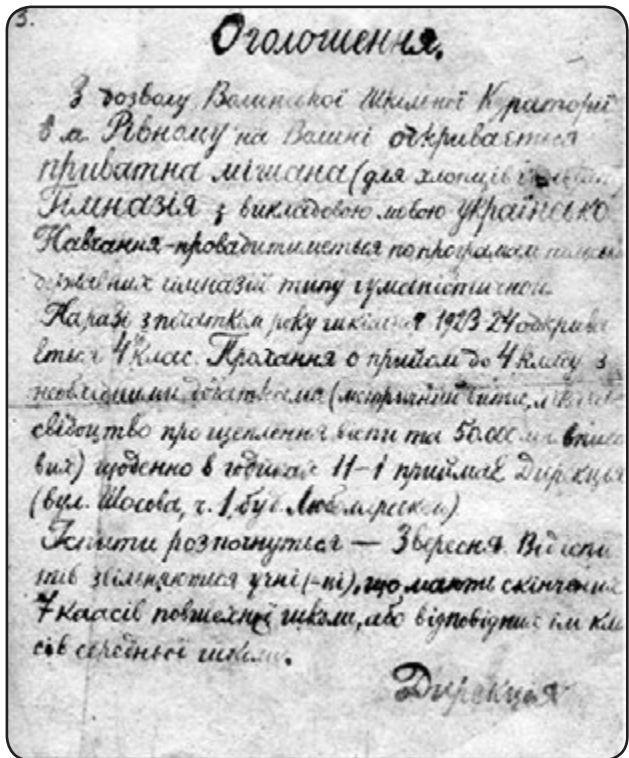 3.
Оголошення.
З дозволу Волинської Шкільної Кураторії
в м. Рівному на Волині открисається
приватна мішана (для хлопців і
Гімназія з викладовою мовою українсько
Навчання провадитиметься по програмам
державних гімназій типу гуманістичного.
Наразі з початком року шкільня 1923-24 одкрива
ється 4 клас. Прохання о прийом до 4 класу з
необхідними додатками (метричний витяг,
свідоцтво про щеплення віспи та 50.000 мп. вписо
вих) щоденно в годинах 11-1 приймає Дирекція
(вул. Шосова, ч. 1, буд. Любомирської)
Іспити розпочнуться — 3 вересня. Від іспи
тів звільняються учні (-ці), що мають скінчених
7 класів повшехної школи, або відповідних їм кля
сів середньої школи.
Дирекція